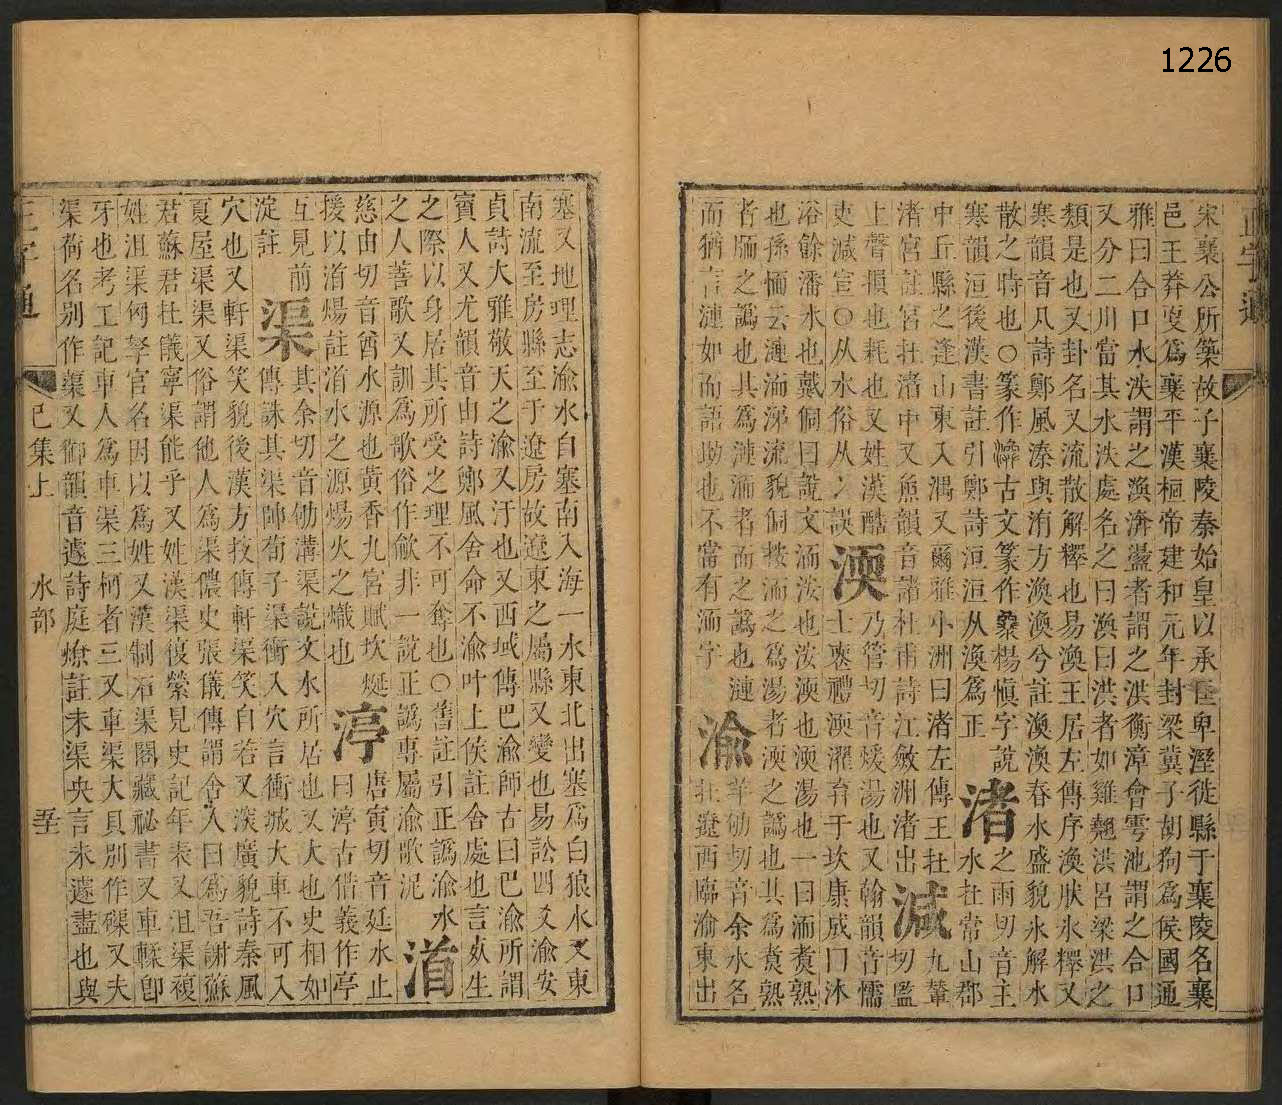 1226
正字通
宋襄公所築故子襄陵秦始皇以承匡卑溼徙縣于襄陵名襄
邑王莽叓爲襄平漢桓帝建和元年封梁冀子胡狗爲侯國通
雅曰合口水泆謂之渙濟盪者謂之洪衡漳會雩池謂之合口
又分二川當其水泆處名之曰渙曰洪者如雞翹洪呂梁洪之
類是也又卦名又流散解釋也易渙王居左傳序渙肰氷釋又
寒韻音凡詩鄭風溱與洧方渙渙兮註渙渙春水盛貌氷解水
散之時也○篆作古文篆作楊愼字說
寒韻洹後漢書註引鄭詩洹洹从渙爲正
渚
之雨切音主
水在常山郡
中丘縣之逢山東入湡又爾雅小洲曰渚左傳王在
渚宮註宮在渚中又魚韻音諸杜甫詩江斂洲渚出
減
九輦
切監
上聲損也耗也又姓漢酷
吏減宣○从水俗从冫誤
渜
乃管切音煖湯也又翰韻音懦
士喪禮渜濯弃于坎康成曰沐
浴餘潘水也戴侗曰說文洏洝也洝渜也渜湯也一曰洏煑熟
也孫愐云漣洏涕流貌侗按洏之爲湯者渜之譌也其爲煑熟
者胹之譌也其爲漣洏者而之譌也漣
而猶言漣如而語助也不當有洏字
渝
羊劬切音余水名
在遼西臨渝東出
塞又地理志渝水自塞南入海一水東北出塞爲白狼水又東
南流至房縣至于遼房故遼東之屬縣又變也易訟四爻渝安
貞詩大雅敬天之渝又汙也又西域傳巴渝師古曰巴渝所謂
賨人又尤韻音由詩鄭風舍命不渝叶上侯註舍處也言生
之際以身居其所受之理不可奪也○舊註引正譌渝水
之人善歌又訓爲歌俗作歈非一說正譌專屬渝歌泥
湭
慈由切音酋水源也黃香九宮賦坎烻
援以湭煬註湭水之源煬火之熾也
渟
唐寅切音廷水止
曰渟古借義作亭
互見前
淀註
渠
其余切音劬溝渠說文水所居也又大也史相如
傳誅其渠帥荀子渠衝入穴言衝城大車不可入
穴也又軒渠笑貌後漢方技傳軒渠笑自若又深廣貌詩秦風
夏屋渠渠又俗謂他人爲渠儂史張儀傳謂舍人曰爲吾謝蘇
君蘇君在儀寧渠能乎又姓漢渠復絫見史記年表又沮渠複
姓沮渠匈孥官名因以爲姓又漢制石渠閣藏祕書又車輮卽
牙也考工記車人爲車渠三柯者三又車渠大貝別作磲又夫
渠荷名別作蕖又御韻音遽詩庭燎註未渠央言未遽盡也與
正字通 巳集上 水部 五十